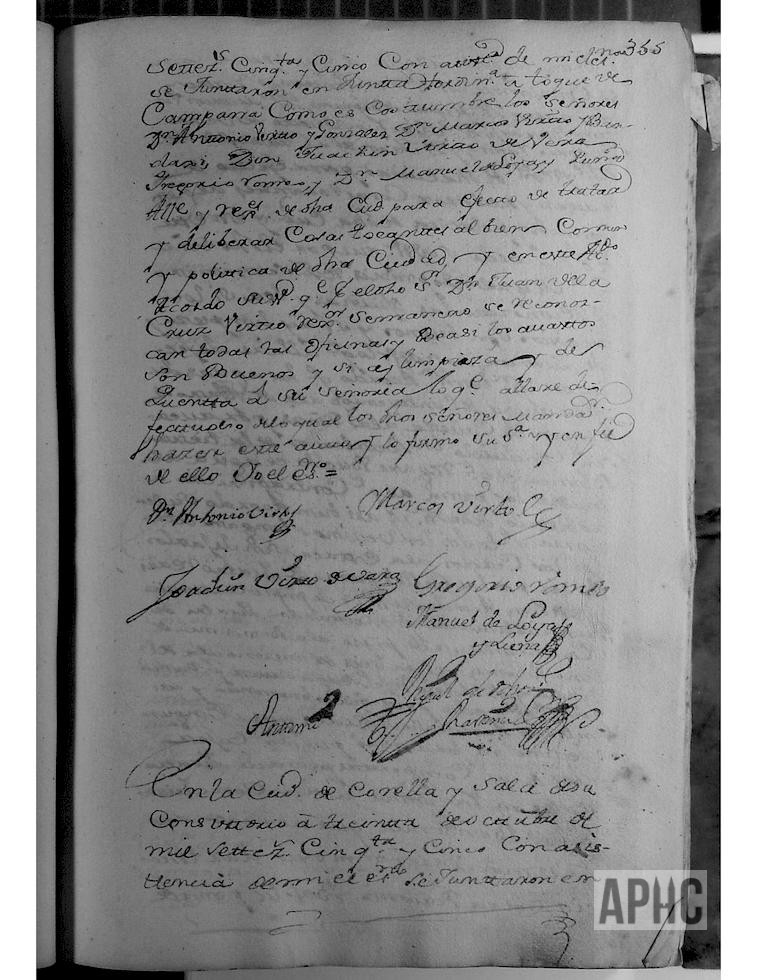 355
settez.s Cinq.ta y Cinco Con asist.a de mi el es.no
se Junttaron en Juntta a toque de
Campana Como es Costtumbre los Señores
D.n Antonio Virto y Gonzalez D.n Marcos Virto y
Don Juachin Virto de Vera
Gregorio Romeo y D.n Manuel de Loyas y Luna
All.e y re.s de dha Ciud para efecto de tratar
y deliberar Cosas tocantes al bien Comun
y politica de dha Ciudad y en este
Acordo su S.a q.e el dho S.r D.n Juan de la
Cruz Virto rex.or Semanero se reconoz-
can todas las oficinas y si los quartos
son Buenos y si ay limpieza y de
Quentta a su señoria lo q.e allare de-
fectuoso de lo qual los dhos señores Mandar.n
hazer este autto y lo firmo su S.a y en fee
de ello Yo el es.no =
D.n Antonio Virto
Marcos Virto
Joachin Virto de Vera
Gregorio Romeo
Manuel de Loyas
y Luna
Antemi
En la Ciud. de Corella y Sala de su
Consistorio a treinta de octubre de
mil settez.s Cinq.ta y Cinco Con asis-
tencia de mi el es.no se Junttaron en
APHC